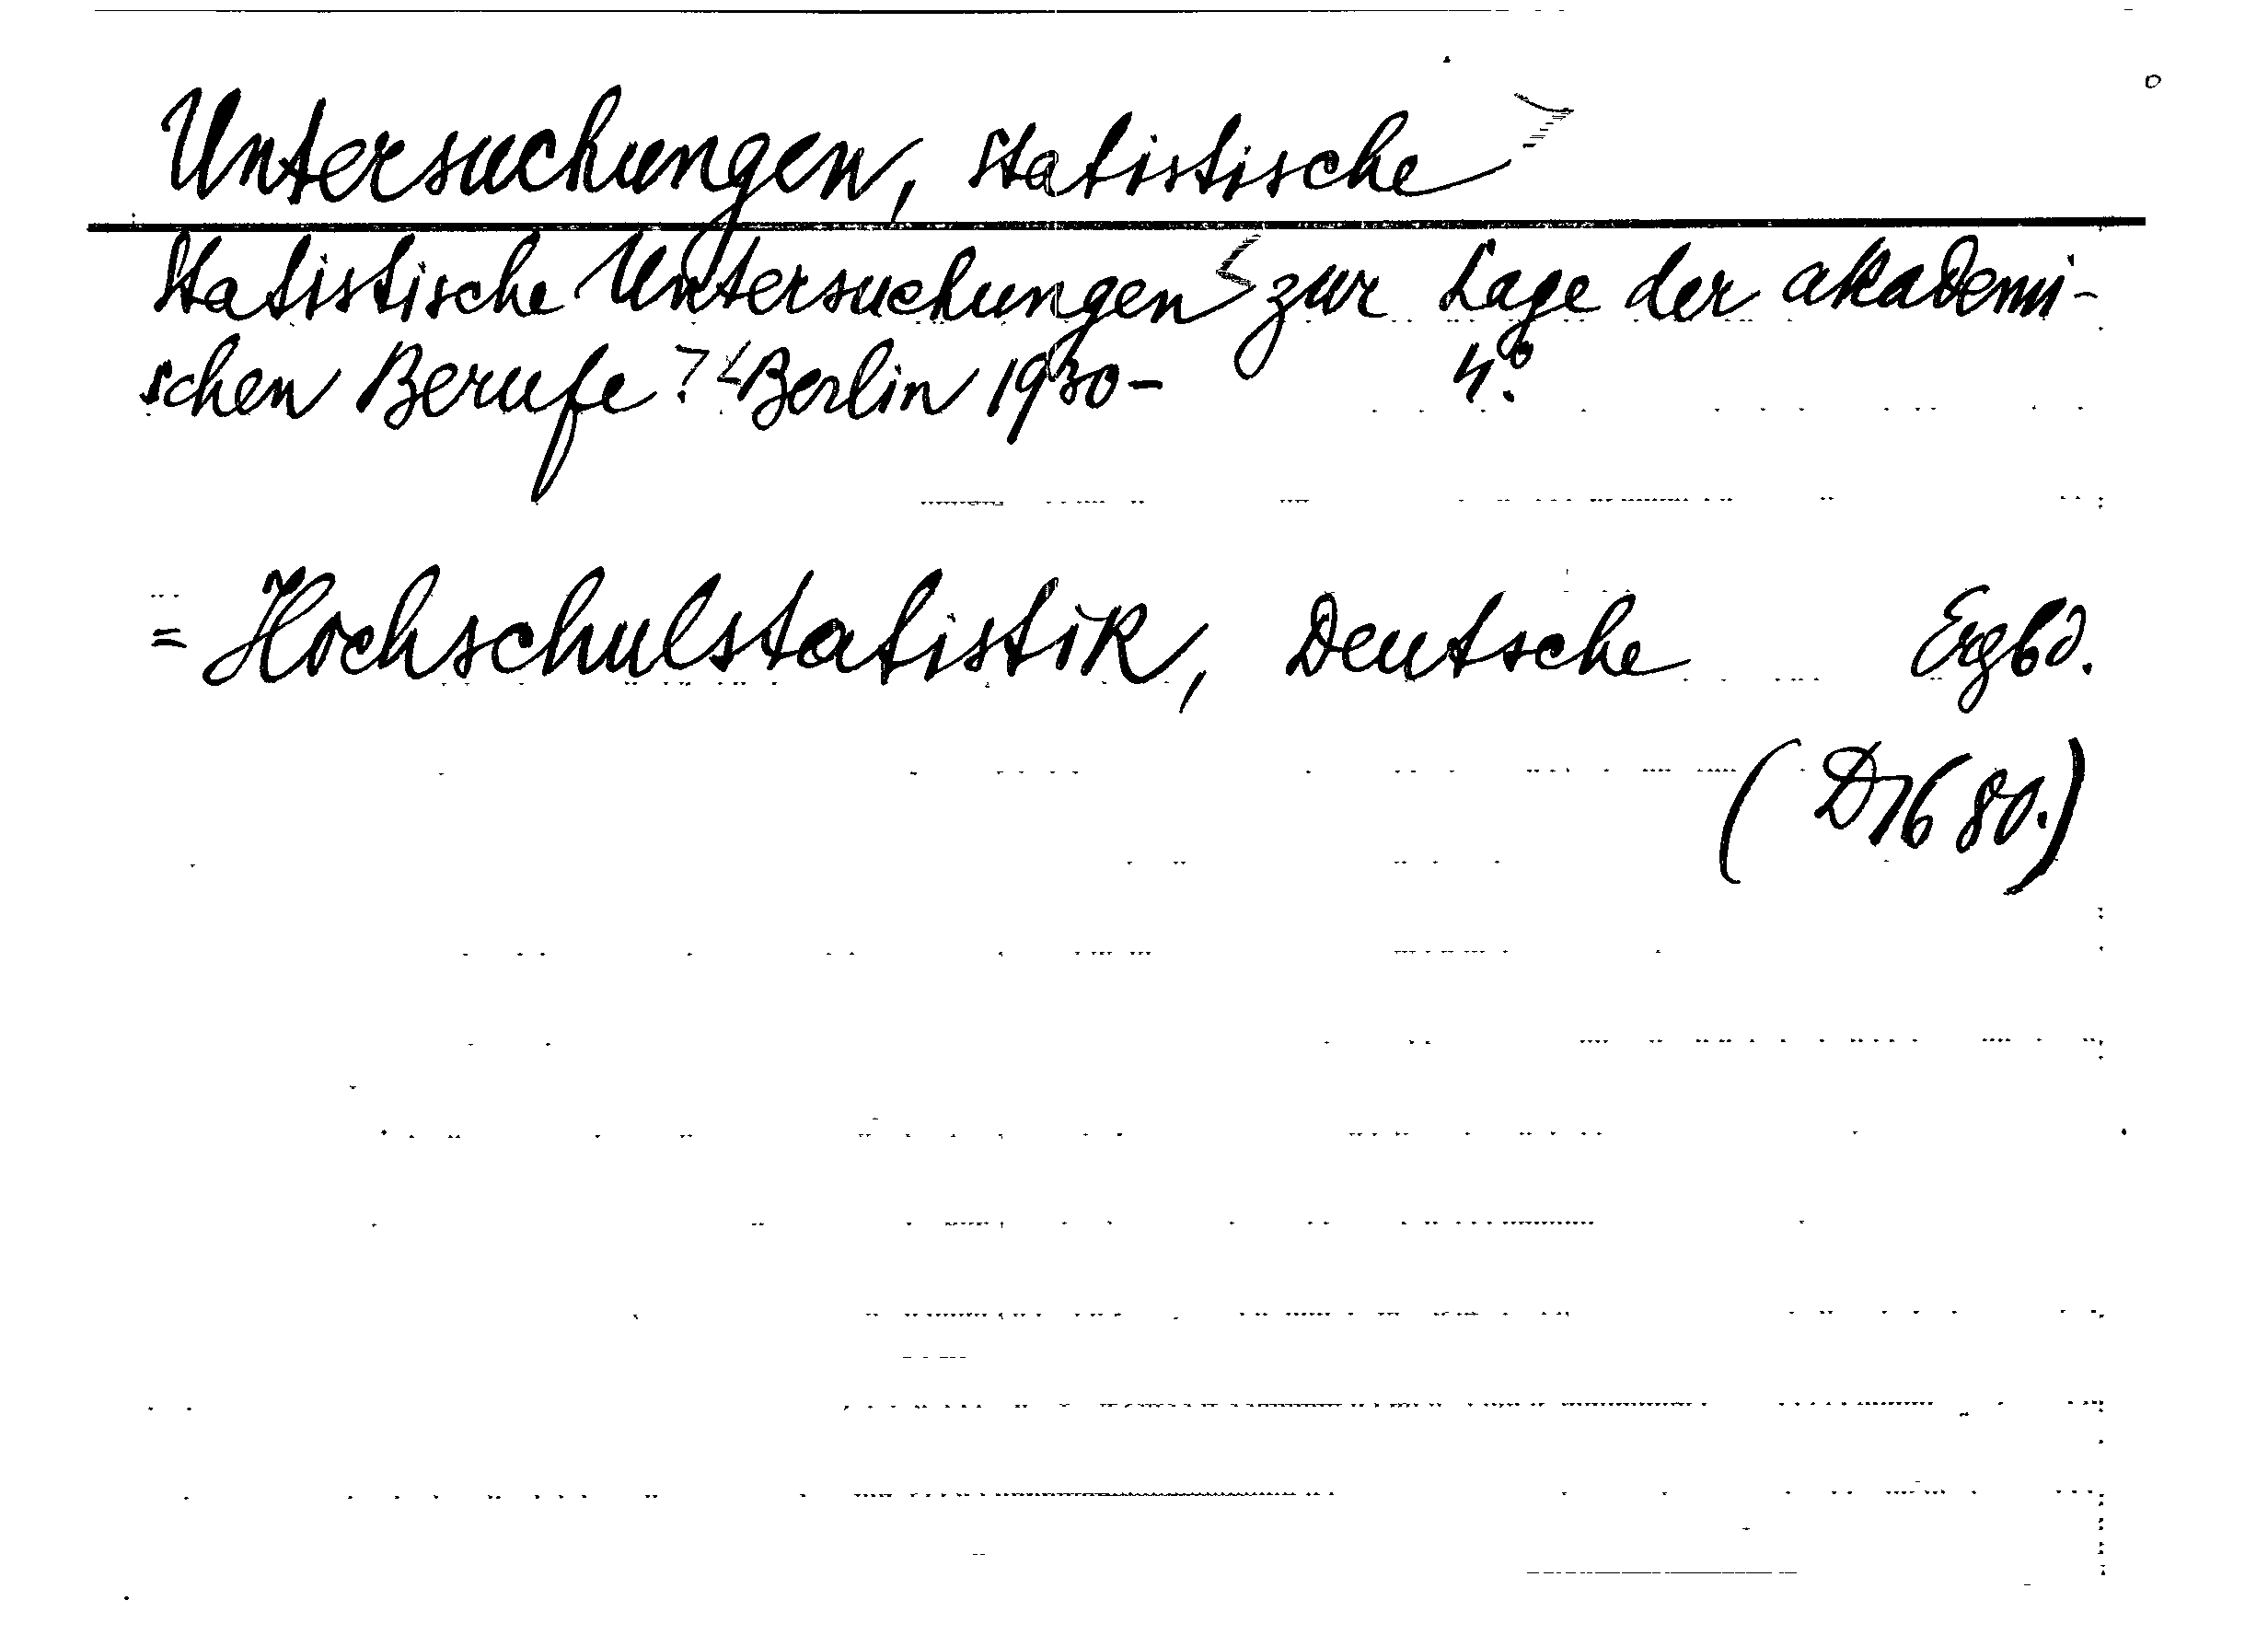 Untersuchungen, statistische
Statistische Untersuchungen zur Lage der akademi-
schen Berufe. Berlin 1930- 4°.
= Hochschulstatistik, Deutsche Ergbd.
(D 1680.)